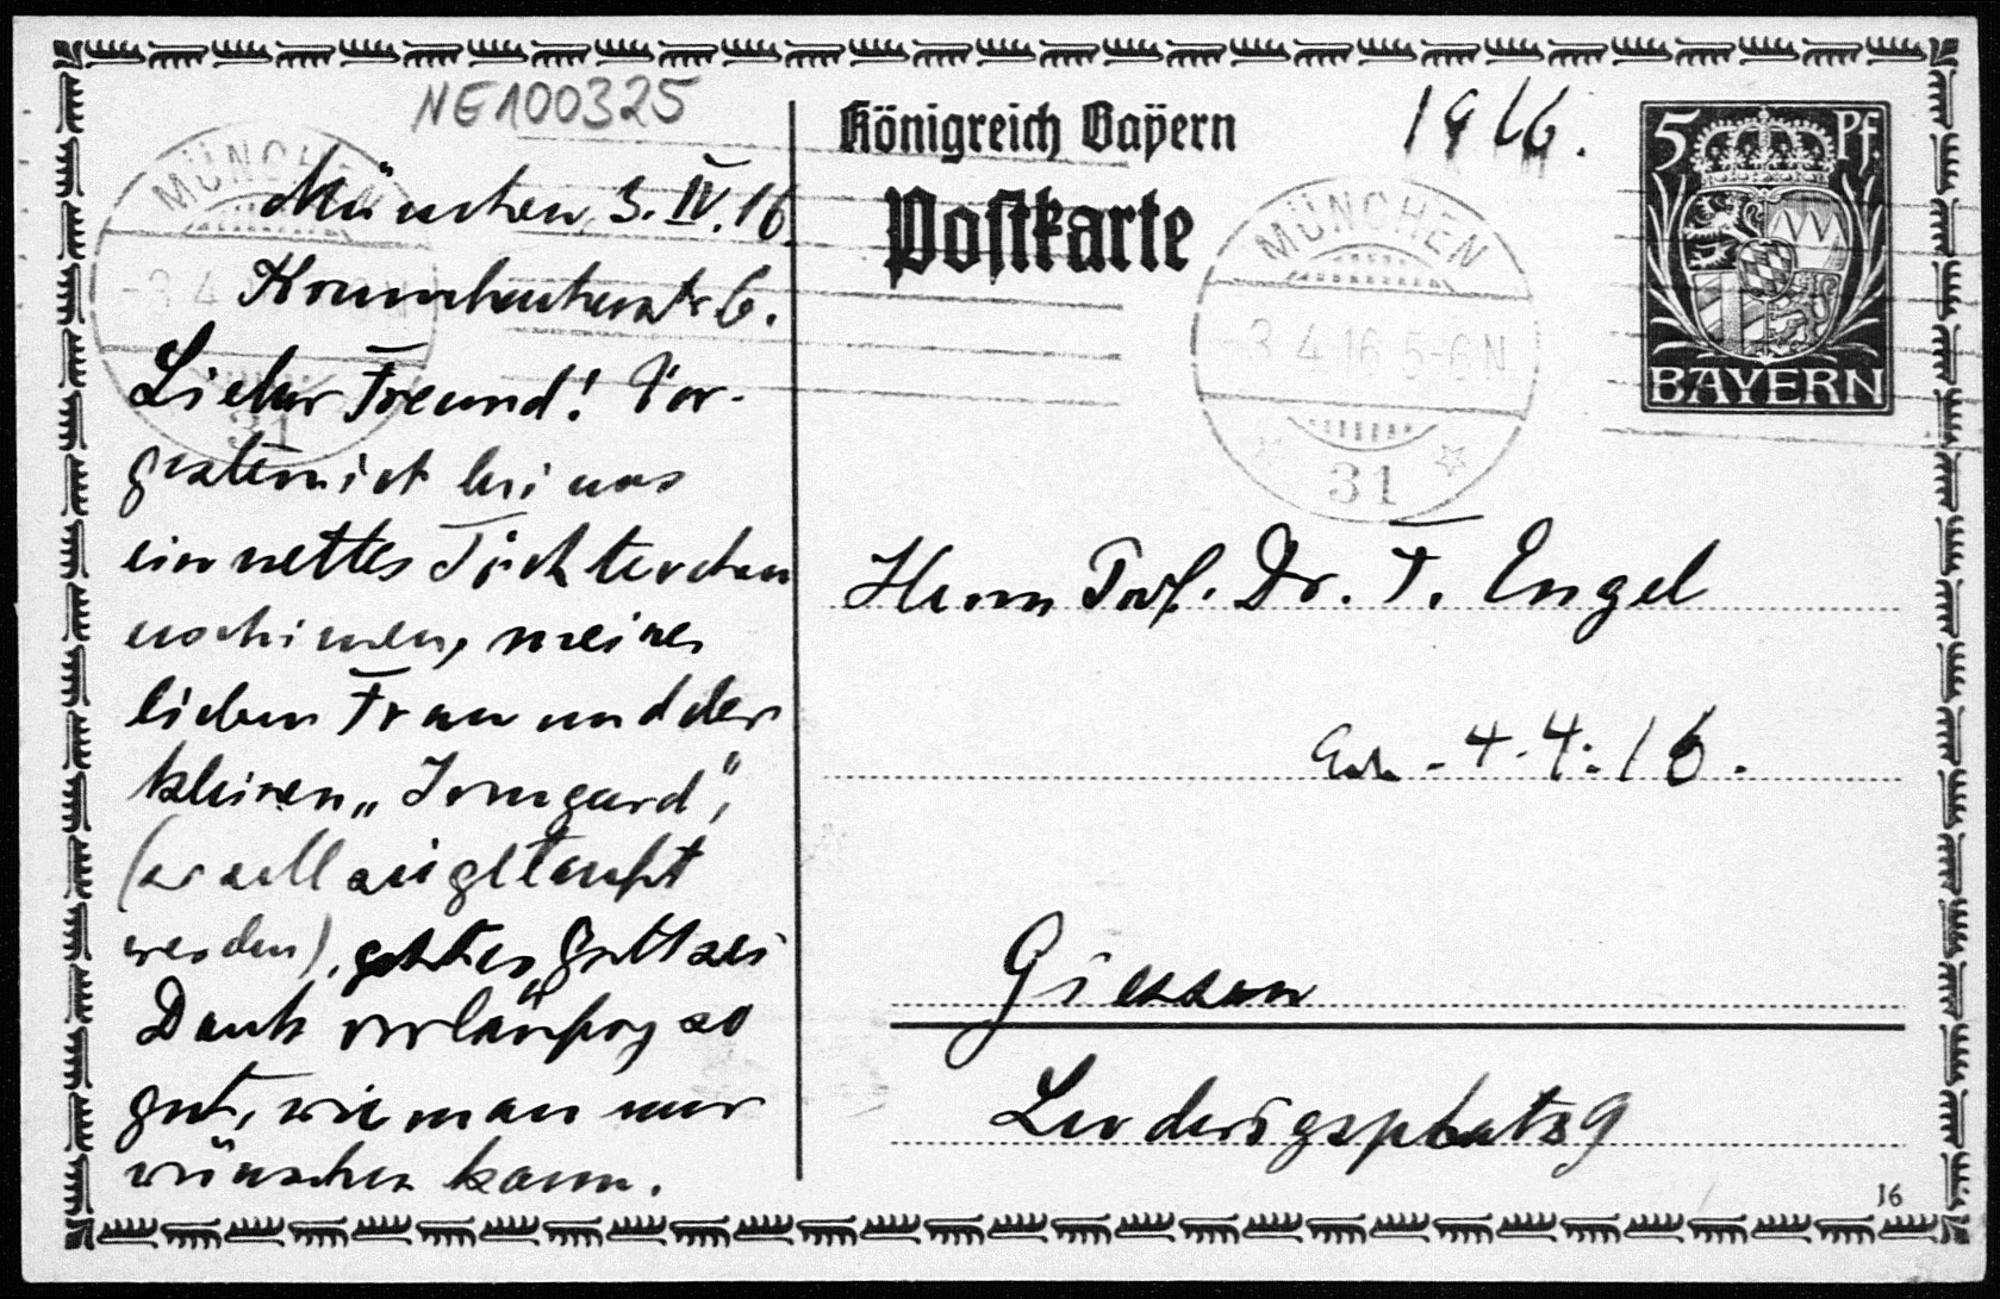 NE100325
München, 3. IV. 16.
Lieber Freund! Vor-
gestern ist bei uns
ein nettes Töchterchen
erschienen, meiner
lieben Frau und der
kleinen „Irmgard“,
(so soll sie getauft
werden), geht es, Gott sei
Dank vorläufig so
gut, wie man nur
wünschen kann.
MÜNCHEN
31
Königreich Bayern
Postkarte
1916.
5 Pf.
BAYERN
MÜNCHEN
3 4 16 5-6 N
31
Herrn Prof. Dr. F. Engel
4.4.16.
Giessen
Ludwigsplatz 9
16